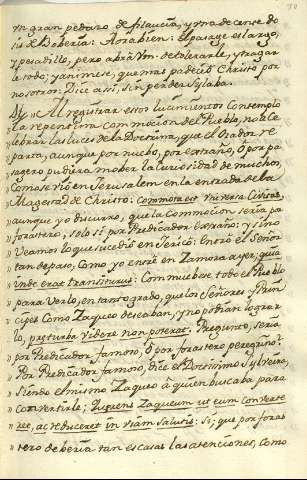 un gran pedazo de filaucia, y otro de cense do
lis de boberia: Ahora bien: el pasage es largo,
y pesadillo, pero abrà Vm. de tolerarle, y tragar
le todo; y animese, que mas padeciò Christo por
nosotros: Dice assi, sin perder sylaba.
Al registrar estos lucimientos, Contemplo
la repentina commocion del Pueblo, no le Ce
lebran las luces de la Doctrina, que el Orador re
parta, aunque por nuebo, por extraño, ò por pa
sagero pudiera mober la curiosidad de muchos,
como se viò en Jerusalem en la entrada de la
Magestad de Christo: Commota est Universa Civitas,
aunque yo discurro, que la Commocion seria por
forastero, solo si por Predicador Extraño; y sino
Veamos lo que sucediò en Jericò: Entrò el Señor
tan de paso, como yo entrè en Zamora ayer, quia
inde erat transiturus: Commuebese todo el Pueblo
para Verlo, en tanto grado, que los Señores, y Prin
cipes como Zaqueo deseaban, y no podian lograr
lo, præ turba videre non poterat. Pregunto, seria
por Predicador famoso, ò por forastero peregrino?
Por Predicador famoso, dice el Doctissimo Sylveira,
siendo el mismo Zaqueo à quien buscaba para
convertirle; Quærens Zaqueum ut eum converte
ret, ac reduceret in viam salutis: Si; que por foras
tero deberia tan escasas las atenciones, como